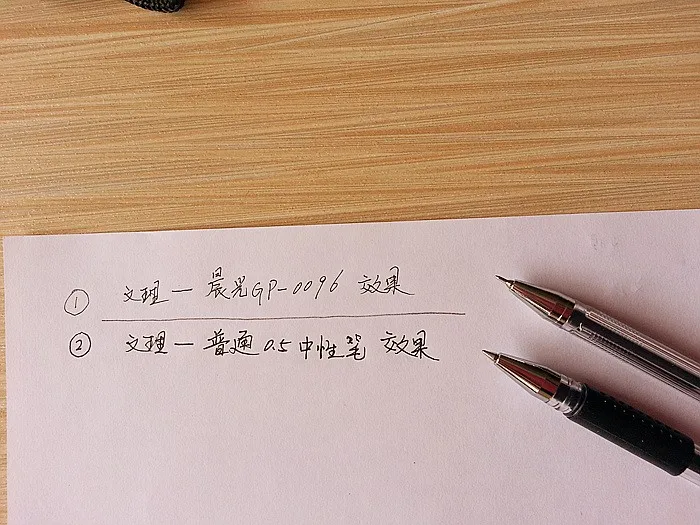 ① 文理一晨光GP-0096 效果
② 文理一普通0.5中性笔 效果